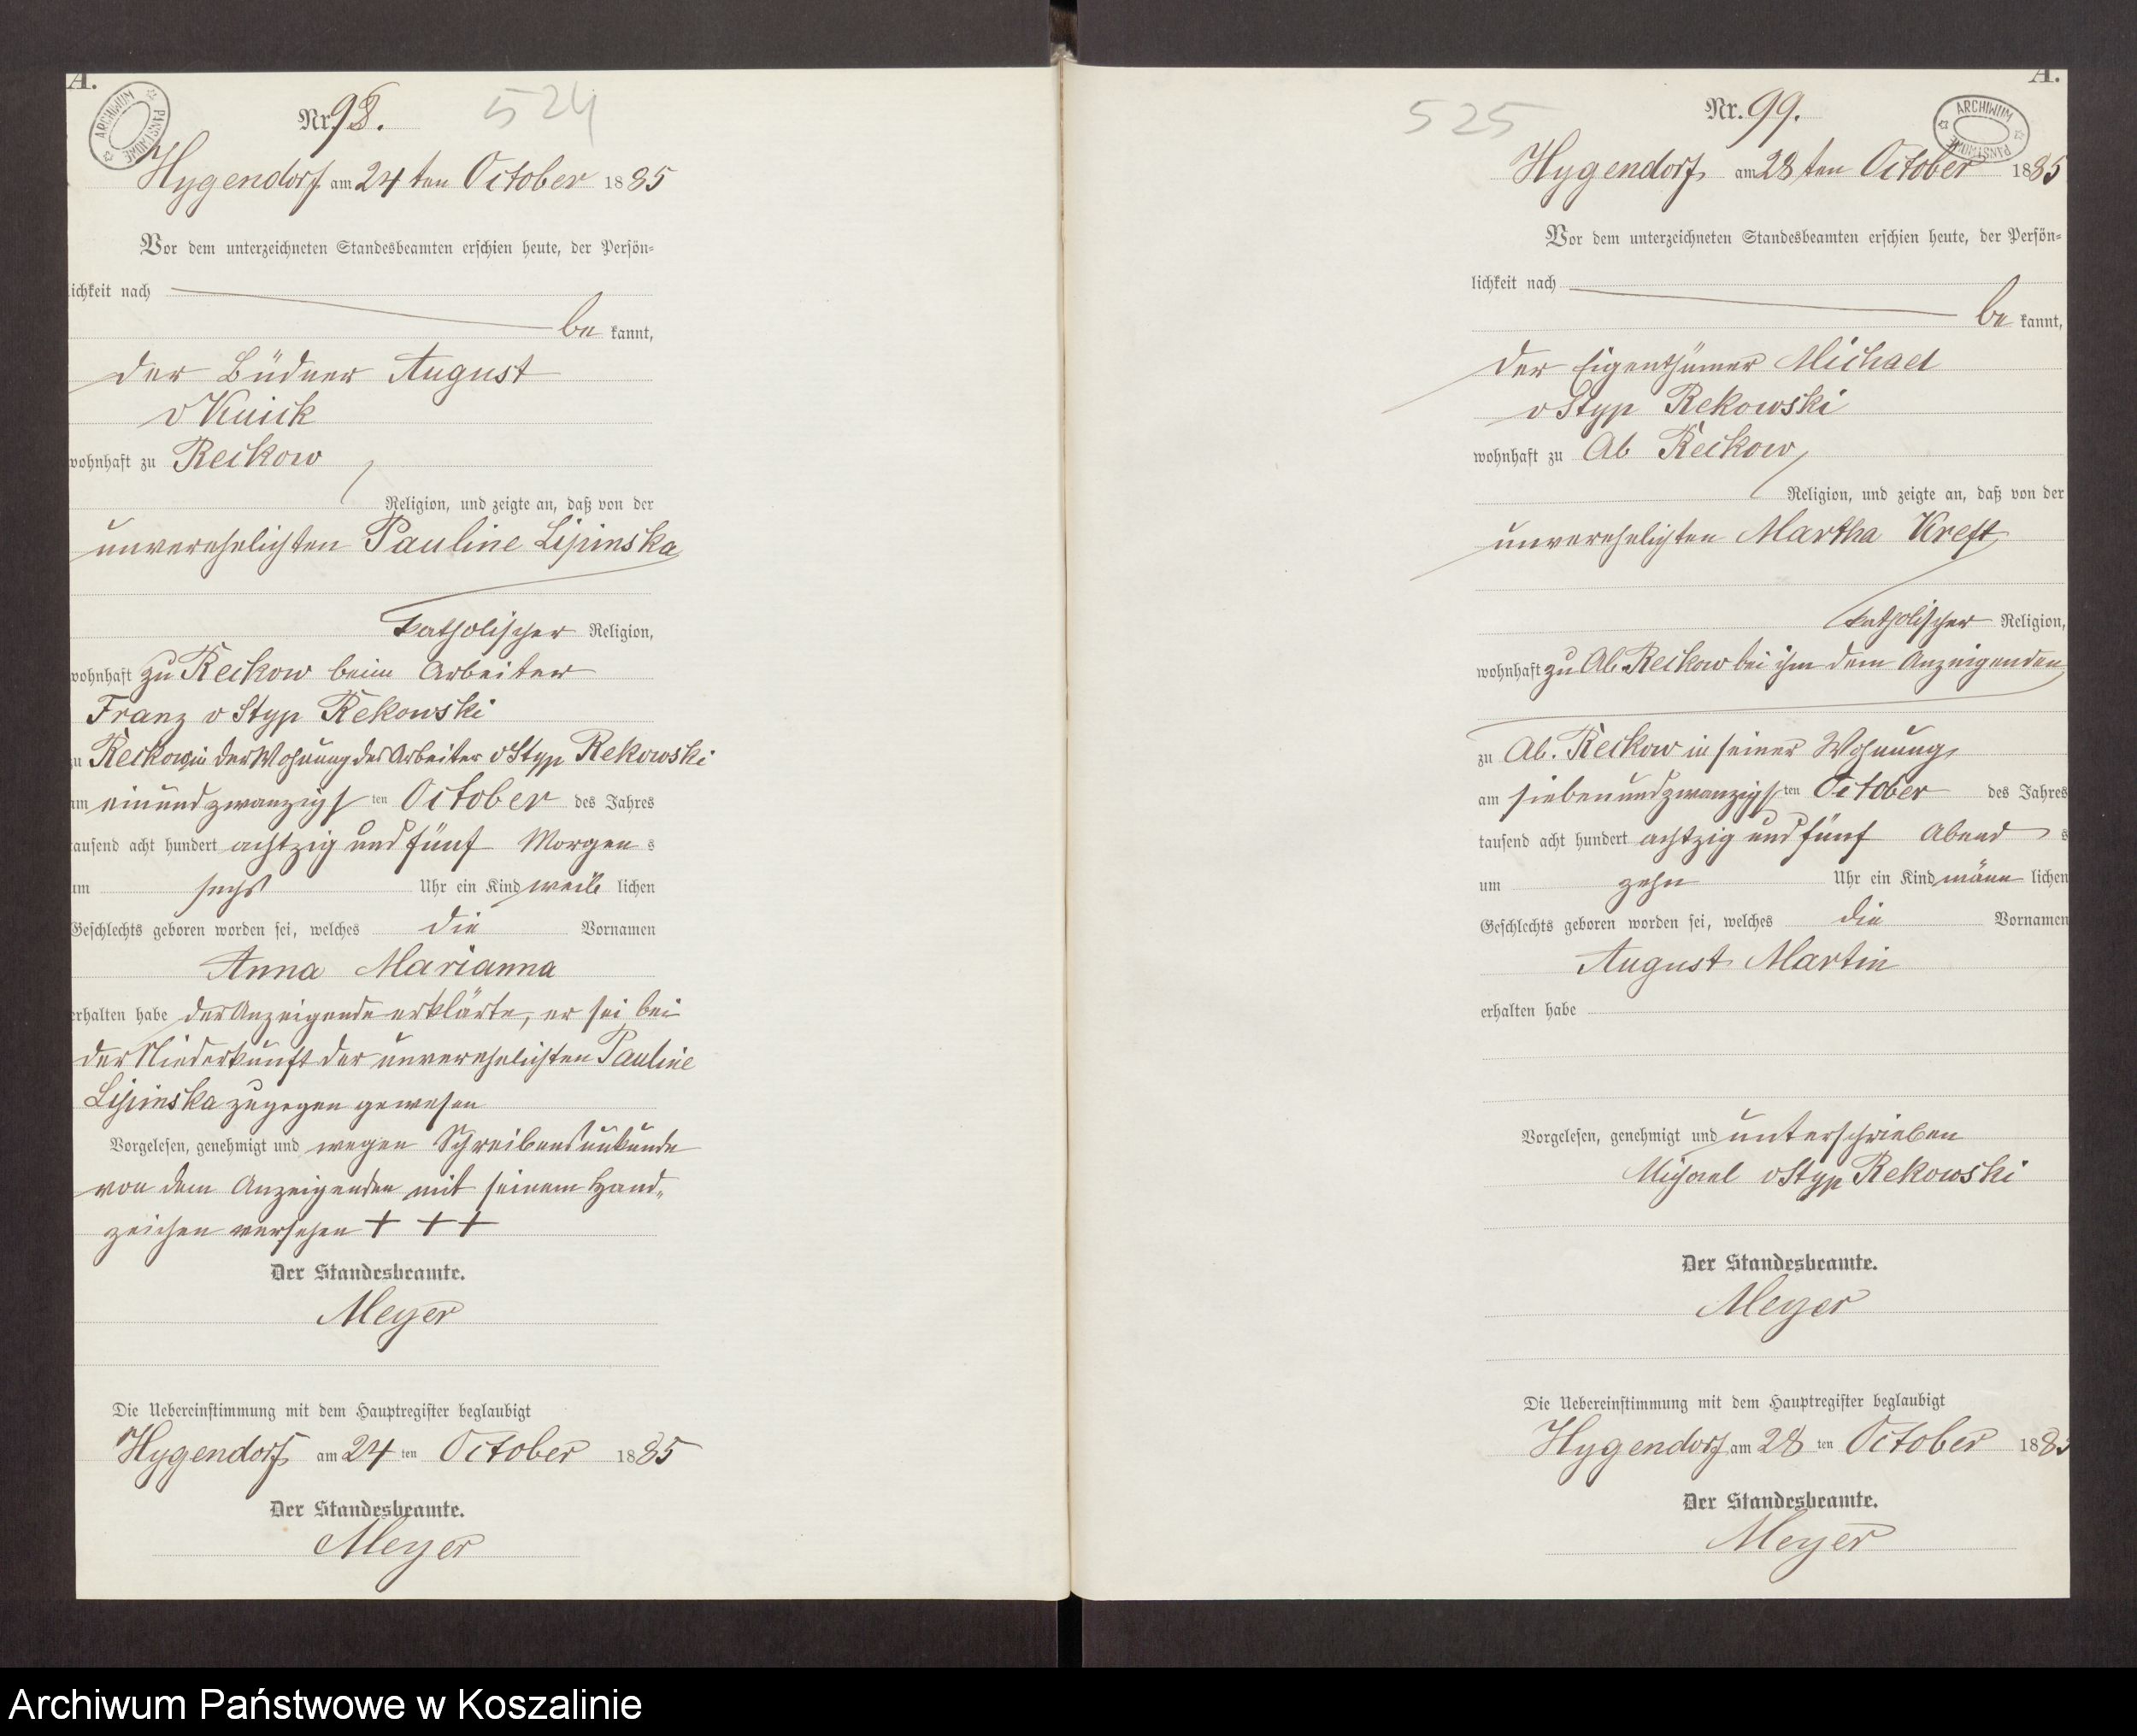 A.
ARCHIWUM PAŃSTWOWE
Nr. 98.
524
Hygendorf am 24 ten October 1885
Vor dem unterzeichneten Standesbeamten erschien heute, der Persön-
lichkeit nach
be kannt,
der Büdner August
v Kuick
wohnhaft zu Reckow
Religion, und zeigte an, daß von der
unverehelichten Pauline Lipinska
katholischer Religion,
wohnhaft zu Reckow beim Arbeiter
Franz v Styp Rekowski
zu Reckow in der Wohnung des Arbeiter v Styp Rekowski
am einundzwanzigsten October des Jahres
tausend acht hundert achtzig und fünf Morgens
um sechs Uhr ein Kind weiblichen
Geschlechts geboren worden sei, welches die Vornamen
Anna Marianna
erhalten habe der Anzeigende erklärte, er sei bei
der Niederkunft der unverehelichten Pauline
Lipinska zugegen gewesen
Vorgelesen, genehmigt und wegen Schreibensunkunde
von dem Anzeigenden mit seinem Hand-
zeichen versehen + + +
Der Standesbeamte.
Meyer
Die Uebereinstimmung mit dem Hauptregister beglaubigt
Hygendorf am 24 ten October 1885
Der Standesbeamte.
Meyer
A.
ARCHIWUM PAŃSTWOWE
525
Nr. 99.
Hygendorf am 28 ten October 1885
Vor dem unterzeichneten Standesbeamten erschien heute, der Persön-
lichkeit nach
be kannt,
der Eigenthümer Michael
v Styp Rekowski
wohnhaft zu Ab Reckow
Religion, und zeigte an, daß von der
unverehelichten Martha Kreft
katholischer Religion,
wohnhaft zu Ab. Reckow bei ihm dem Anzeigenden
zu Ab. Reckow in seiner Wohnung
am siebenundzwanzigsten October des Jahres
tausend acht hundert achtzig und fünf Abends
um zehn Uhr ein Kind männlichen
Geschlechts geboren worden sei, welches die Vornamen
August Martin
erhalten habe
Vorgelesen, genehmigt und unterschrieben
Michael v Styp Rekowski
Der Standesbeamte.
Meyer
Die Uebereinstimmung mit dem Hauptregister beglaubigt
Hygendorf am 28 ten October 1885
Der Standesbeamte.
Meyer
Archiwum Państwowe w Koszalinie